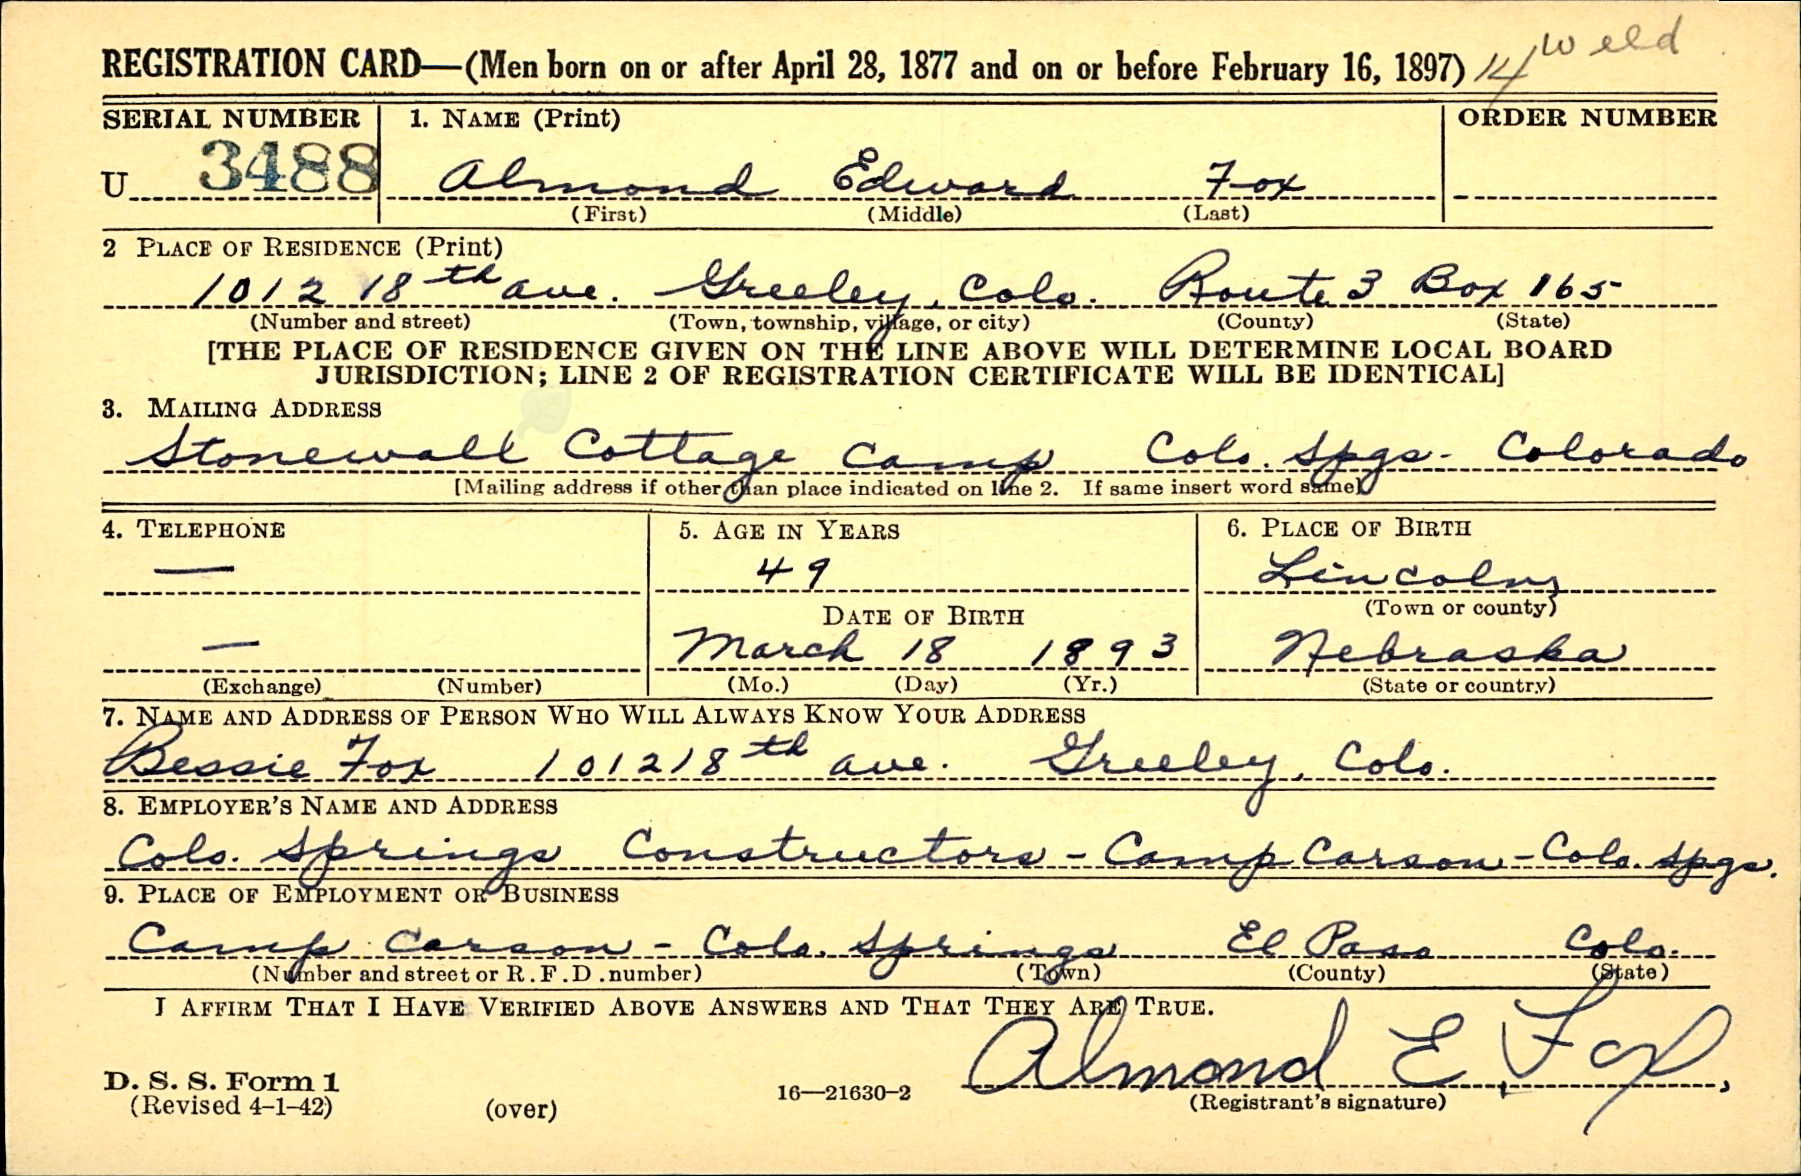 REGISTRATION CARD—(Men born on or after April 28, 1877 and on or before February 16, 1897) 14 Weld
SERIAL NUMBER 1. NAME (Print) ORDER NUMBER
U 3488 Almond Edward Fox
(First) (Middle) (Last)
2 PLACE OF RESIDENCE (Print)
1012 18th ave. Greeley, Colo. Route 3 Box 165
(Number and street) (Town, township, village, or city) (County) (State)
[THE PLACE OF RESIDENCE GIVEN ON THE LINE ABOVE WILL DETERMINE LOCAL BOARD
JURISDICTION; LINE 2 OF REGISTRATION CERTIFICATE WILL BE IDENTICAL]
3. MAILING ADDRESS
Stonewall Cottage Camp Colo. Spgs- Colorado
[Mailing address if other than place indicated on line 2. If same insert word same]
4. TELEPHONE 5. AGE IN YEARS 6. PLACE OF BIRTH
— 49 Lincoln
DATE OF BIRTH (Town or county)
— March 18 1893 Nebraska
(Exchange) (Number) (Mo.) (Day) (Yr.) (State or country)
7. NAME AND ADDRESS OF PERSON WHO WILL ALWAYS KNOW YOUR ADDRESS
Bessie Fox 1012 18th ave. Greeley, Colo.
8. EMPLOYER'S NAME AND ADDRESS
Colo. Springs Constructors - Camp Carson - Colo. Spgs.
9. PLACE OF EMPLOYMENT OR BUSINESS
Camp Carson - Colo. Springs El Paso Colo.
(Number and street or R. F. D. number) (Town) (County) (State)
I AFFIRM THAT I HAVE VERIFIED ABOVE ANSWERS AND THAT THEY ARE TRUE.
Almond E Fox
D. S. S. Form 1
(Revised 4-1-42) (over) 16—21630-2 (Registrant's signature)